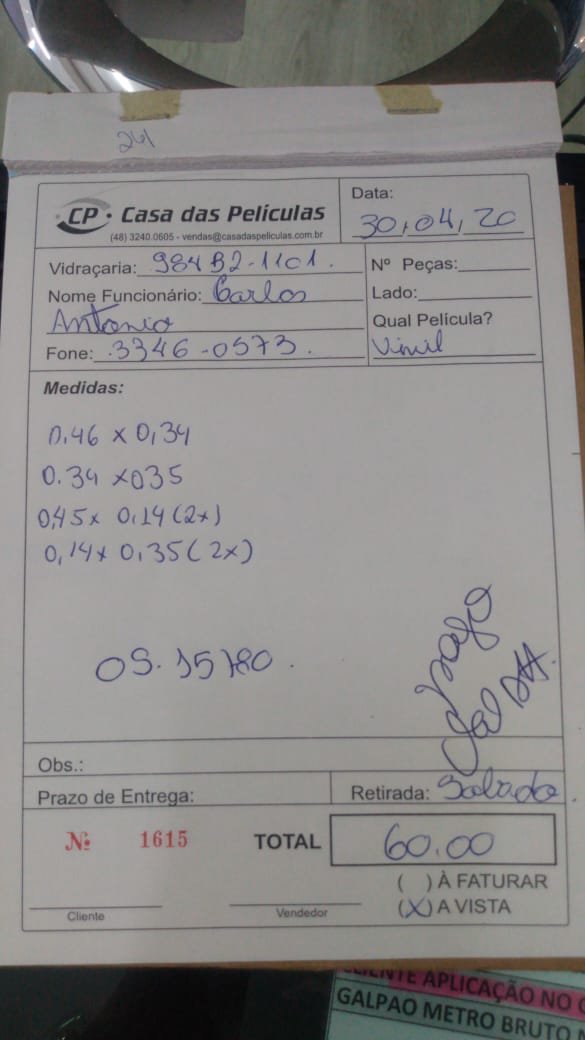 241
CP Casa das Películas
(48) 3240.0605 - vendas@casadaspeliculas.com.br
Data:
30,04,20
Vidraçaria: 984B2-1101.
Nome Funcionário: Carlos
Antonio
Fone: .3346-0573.
Nº Peças:
Lado:
Qual Película?
Vinil
Medidas:
0.46 x 0,34
0.34 x035
0,45x 0,14(2x)
0,14x 0,35(2x)
OS. 15780.
pago
Obs.:
Prazo de Entrega:
Retirada: Sabado.
Nº 1615
TOTAL 60.00
( ) À FATURAR
(X) A VISTA
Cliente
Vendedor
CLIENTE APLICAÇÃO NO
GALPAO METRO BRUTO